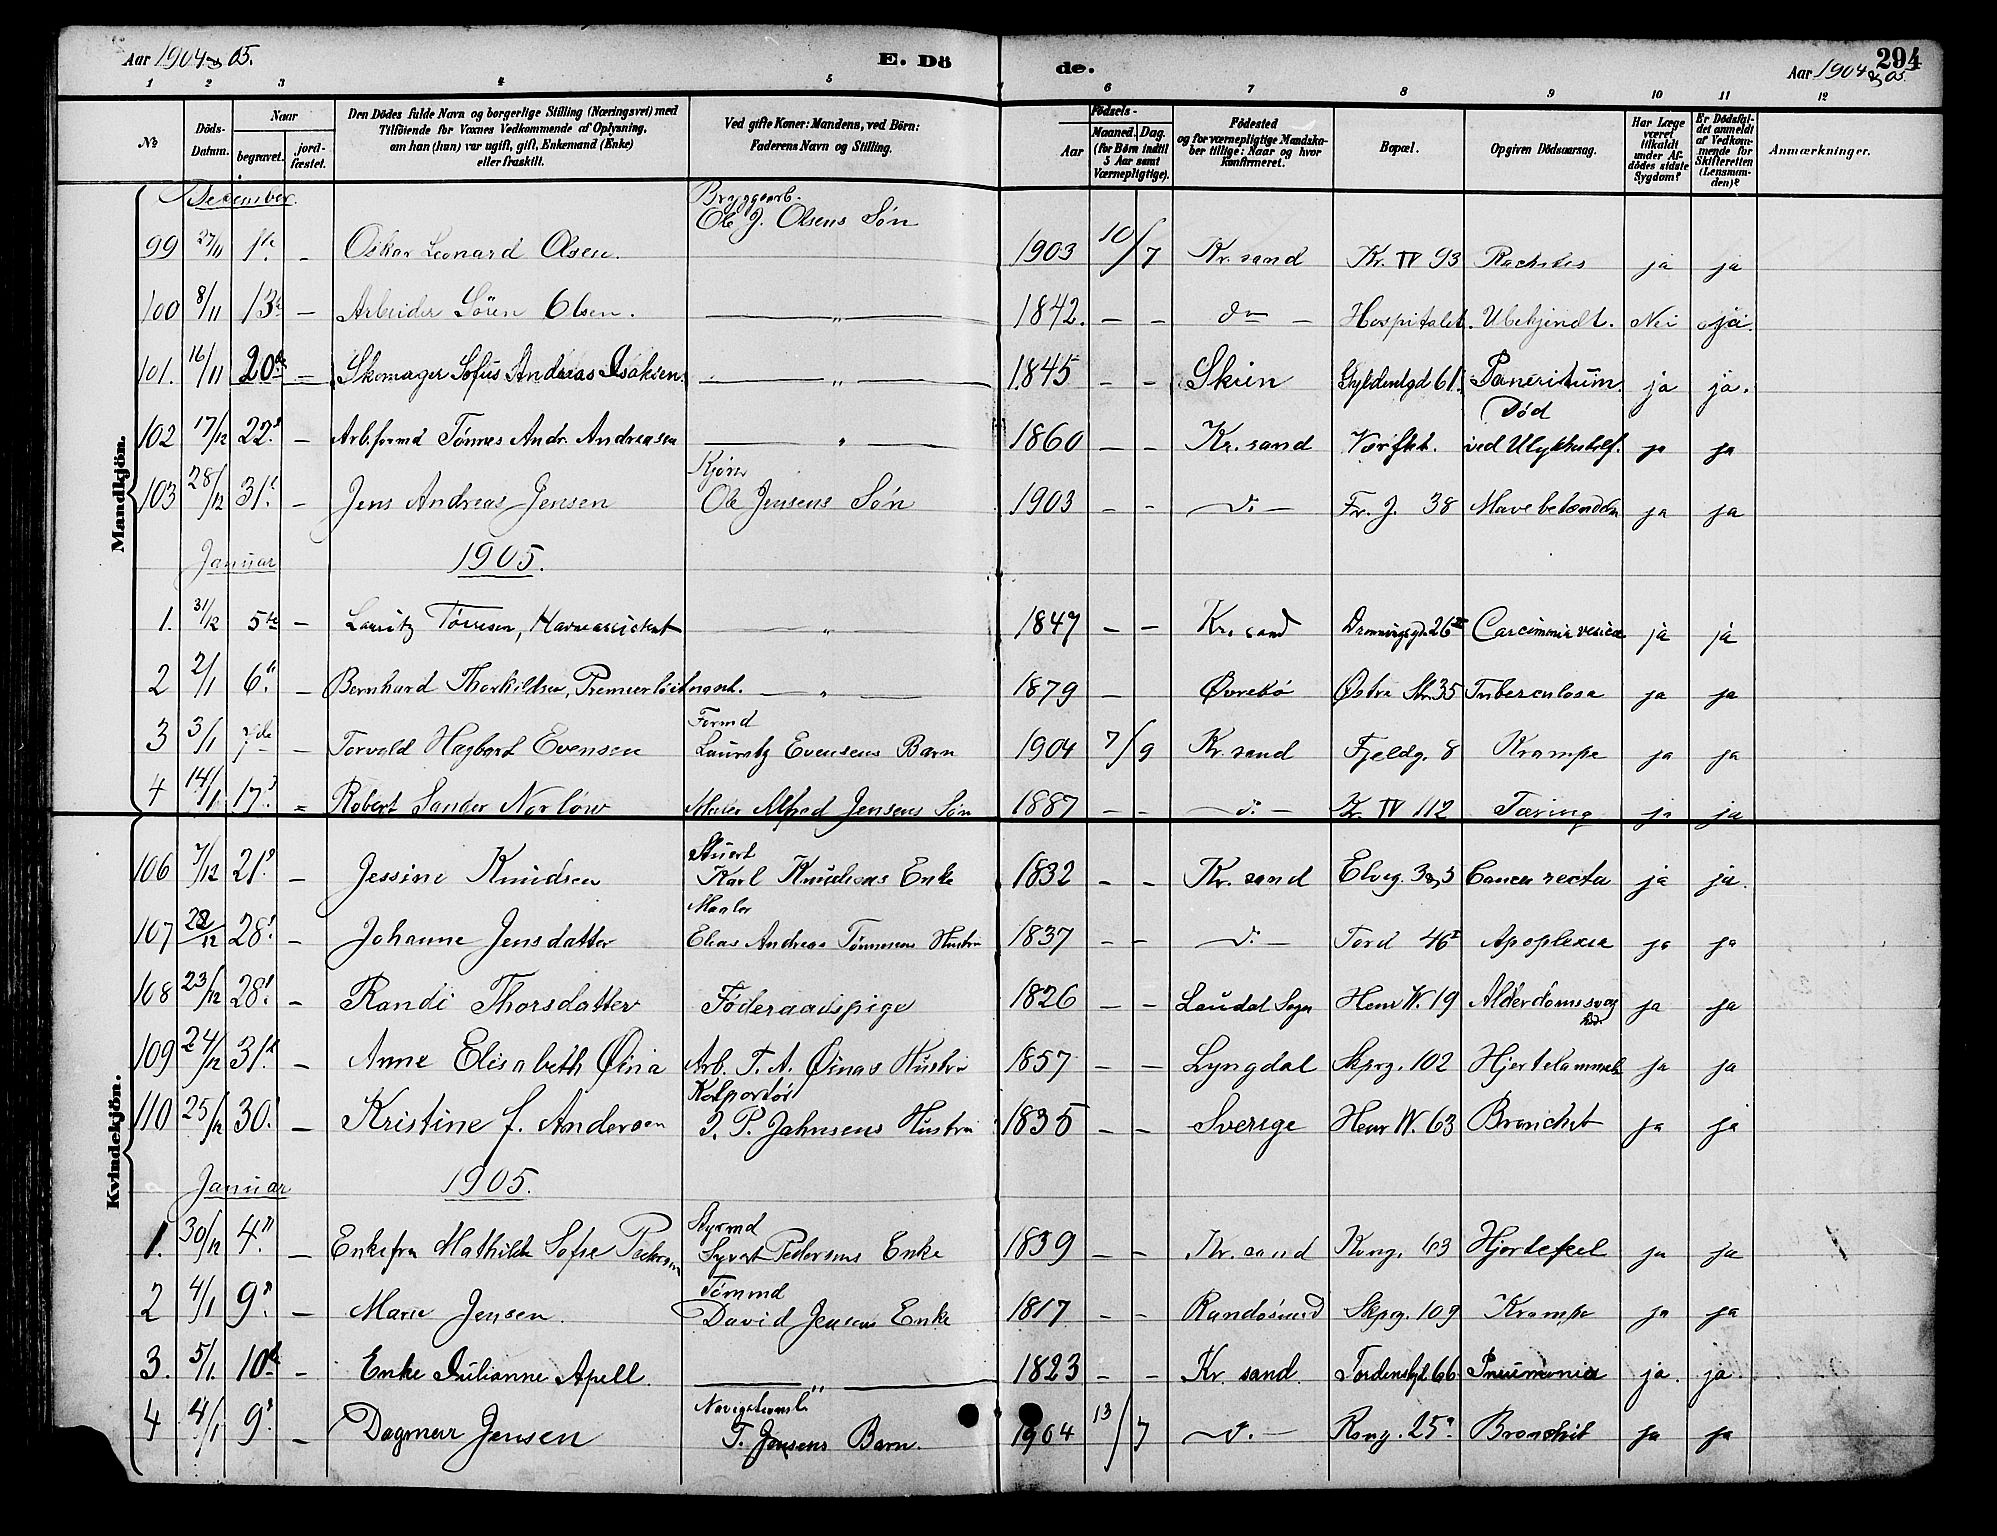 Aar 1904 & 05.
E. Dö
de.
294
Aar 1904 & 05
1 2 3 4 5 6 7 8 9 10 11 12
№ Döds-Datum. Naar begravet. jord-fæstet. Den Dödes fulde Navn og borgerlige Stilling (Næringsvei) med Tilföiende for Voxnes Vedkommende af Oplysning, om han (hun) var ugift, gift, Enkemand (Enke) eller fraskilt. Ved gifte Koner: Mandens, ved Börn: Faderens Navn og Stilling. Födsels- Aar Maaned. Dag. (for Börn indtil 5 Aar samt Værnepligtige). Födested og for værnepligtige Mandskaber tillige: Naar og hvor konfirmeret. Bopæl. Opgiven Dödsaarsag. Har Læge været tilkaldt under Afdödes sidste Sygdom? Er Dödsfaldet anmeldt af Vedkommende for Skifteretten (Lensmanden)? Anmærkninger.
Mandkjön.
December.
Bryggearb.
99 27/11 1te - Oskar Leonard Olsen. Ole J. Olsens Søn 1903 10/7 Kr.sand Kr. IV 93 Rachites ja ja
100 8/11 13de - Arbeider Sören Olsen. — „ — 1842. - - do - Hospitalet. Ubekjendt. Nei ja.
101. 16/11 20de - Skomager Sofus Andreas Isaksen. — „ — 1845 - - Skien Gyldenlgd 61. ja ja.
Död
102 17/12 22. - Arb.formd Tönnes Andr. Andreasen — „ — 1860 - - Kr.sand ved Ulykkestilf. ja ja
103 28/12 31. - Jens Andreas Jensen Ole Jensens Søn 1903 - - do - Fr. J. 38 ja ja
Januar 1905.
1. 31/12 5te - Lauritz Tönnesen, Havneassistent — „ — 1847 - - Kr.sand Dronningsgd. 26 ja ja
2 2/1 6. - Bernhard Thorkildsen, Premierlöitnant. — „ — 1879 - Øvrebö Østre Str. 35 Tuberculose ja ja
Formd
3 3/1 7de - Torvald Hagbart Evensen Lauritz Evensens Barn 1904 7/9 Kr.sand Fjeldg. 8 Krampe ja ja
4 14/1 17. - Robert Sander Norlöw Maler Alfred Jensens Søn 1887 - - do - Kr. IV 112 Tæring ja ja
Kvindekjön.
Stuert
106 7/12 21. - Jessine Knudsen Karl Knudsens Enke 1832 - - Kr.sand Elveg. Cancer recta ja ja.
Maaler
107 22/12 28. - Johanne Jensdatter Elias Andreas Tönnesens Hustru 1837 - - do - Tord 46 Apoplexia ja ja
108 23/12 28. - Randi Thorsdatter Föderaadspige 1826 - - Laudal Sogn Henr W. 19 Alderdomssvaghed. ja ja
109 24/12 31te - Anne Elisabeth Øina Arb. T. A. Øinas Hustru 1857 - - Lyngdal Skprg. 102 Hjertelammelse ja ja
Kolportör
110 25/12 30. Kristine f. Andersen J. P. Jahnsens Hustru 1835 - - Sverige Henr W. 63 Bronchit ja ja
Januar 1905.
Styrmd
1. 30/12 4. - Enkefru Mathilde Sofie Pedersen Syvert Pedersens Enke 1839 - - Kr.sand Kong. 63 Hjertefeil ja ja
Tömmd
2 4/1 9. - Marie Jensen. David Jensens Enke 1817 - - Randösund Skprg. 109 Krampe ja ja
3. 5/1. 10de - Enke Julianne Apell. — „ — 1823 - - Kr.sand. Tordenskjd. 66 Pneumonia ja. ja.
Navigationsl.
4 4/1 9. - Dagmar Jensen T. Jensens Barn. 1904 13/7 do - Kong. 25 Bronchit ja ja